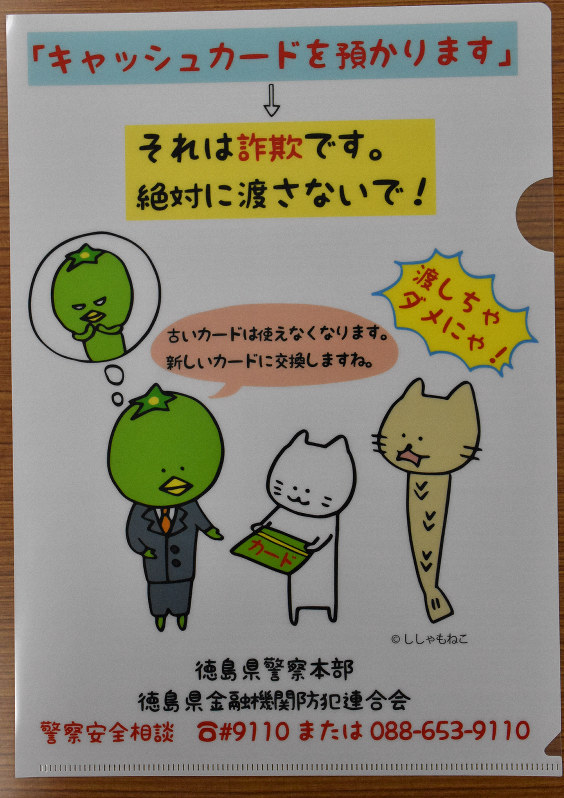 「キャッシュカードを預かります」
それは詐欺です。
絶対に渡さないで！
渡しちゃ
ダメにゃ！
古いカードは使えなくなります。
新しいカードに交換しますね。
カード
©ししゃもねこ
徳島県警察本部
徳島県金融機関防犯連合会
警察安全相談 ☎#9110 または 088-653-9110